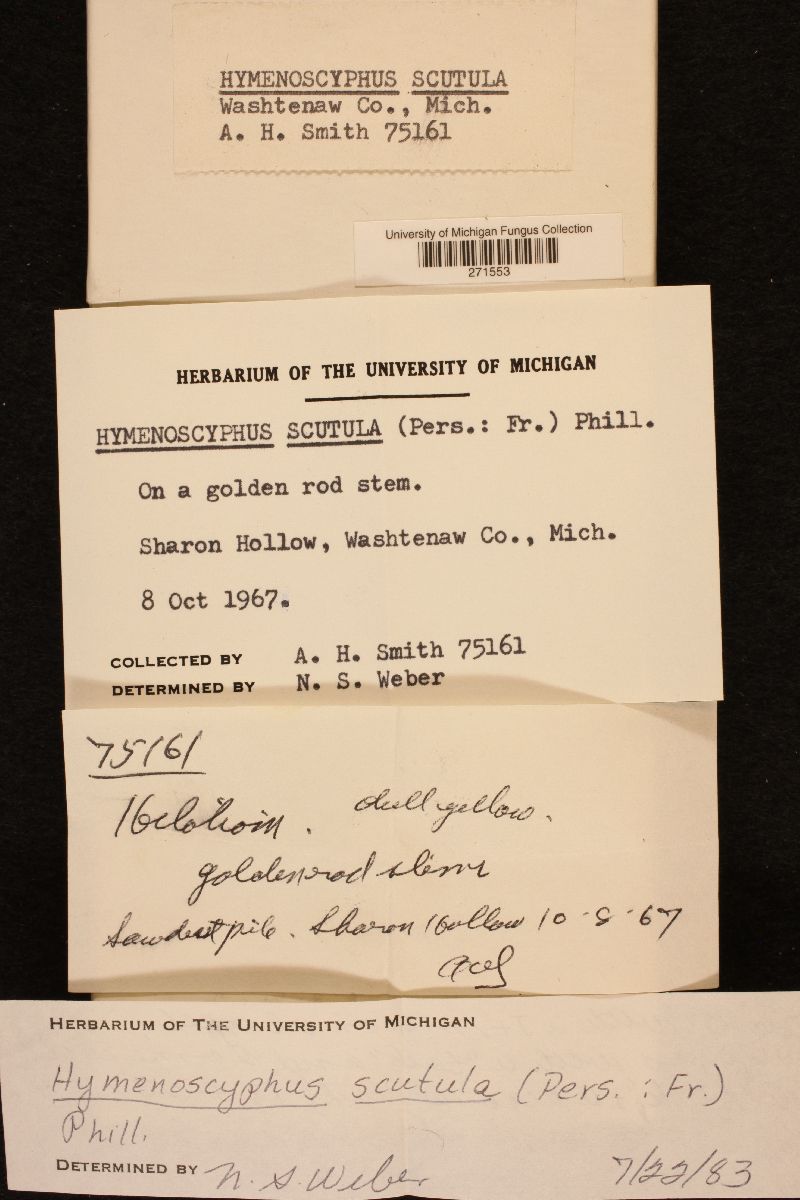 HYMENOSCYPHUS SCUTULA
Washtenaw Co., Mich.
A. H. Smith 75161
University of Michigan Fungus Collection
271553
HERBARIUM OF THE UNIVERSITY OF MICHIGAN
HYMENOSCYPHUS SCUTULA (Pers.: Fr.) Phill.
On a golden rod stem.
Sharon Hollow, Washtenaw Co., Mich.
8 Oct 1967.
COLLECTED BY A. H. Smith 75161
DETERMINED BY N. S. Weber
75161
dull yellow.
goldenrod stems
Sawdust pile. Sharon Hollow 10-8-67
HERBARIUM OF THE UNIVERSITY OF MICHIGAN
Hymenoscyphus scutula (Pers. : Fr.)
Phill.
DETERMINED BY N. S. Weber 7/22/83